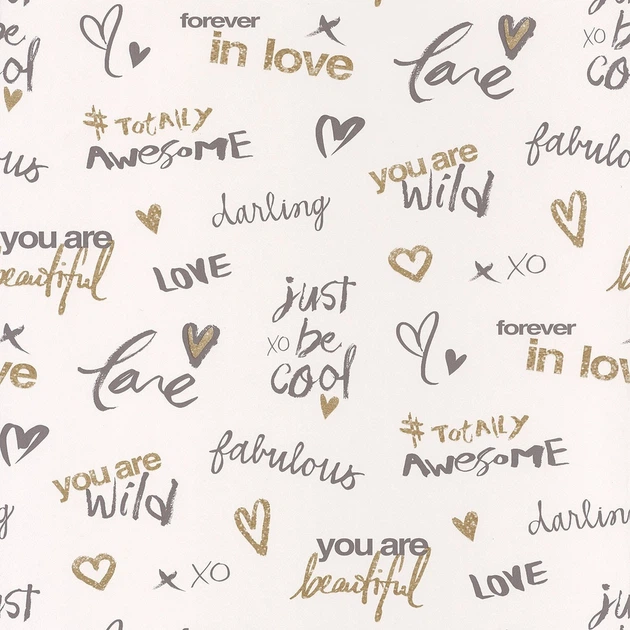 be
ool
forever
in love
Love
xo b
co
# TotAlly
AwesoME
fabulo
us
you are
wild
darling
you are
beautiful
LOVE
x XO
just
xo be
cool
forever
in lov
ve
Love
# TotAlly
AwesoME
fabulous
you are
wild
g
darlin
you are
beautiful
LOVE
x XO
st
ju